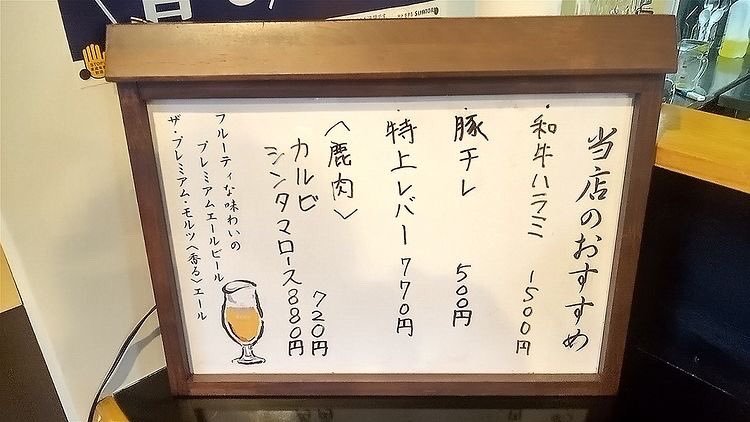 当店のおすすめ
・和牛ハラミ 1500円
・豚チレ 500円
・特上レバー 770円
〈鹿肉〉
カルビ 720円
シンタマロース 880円
フルーティな味わいの
プレミアムエールビール
ザ・プレミアム・モルツ〈香る〉エール